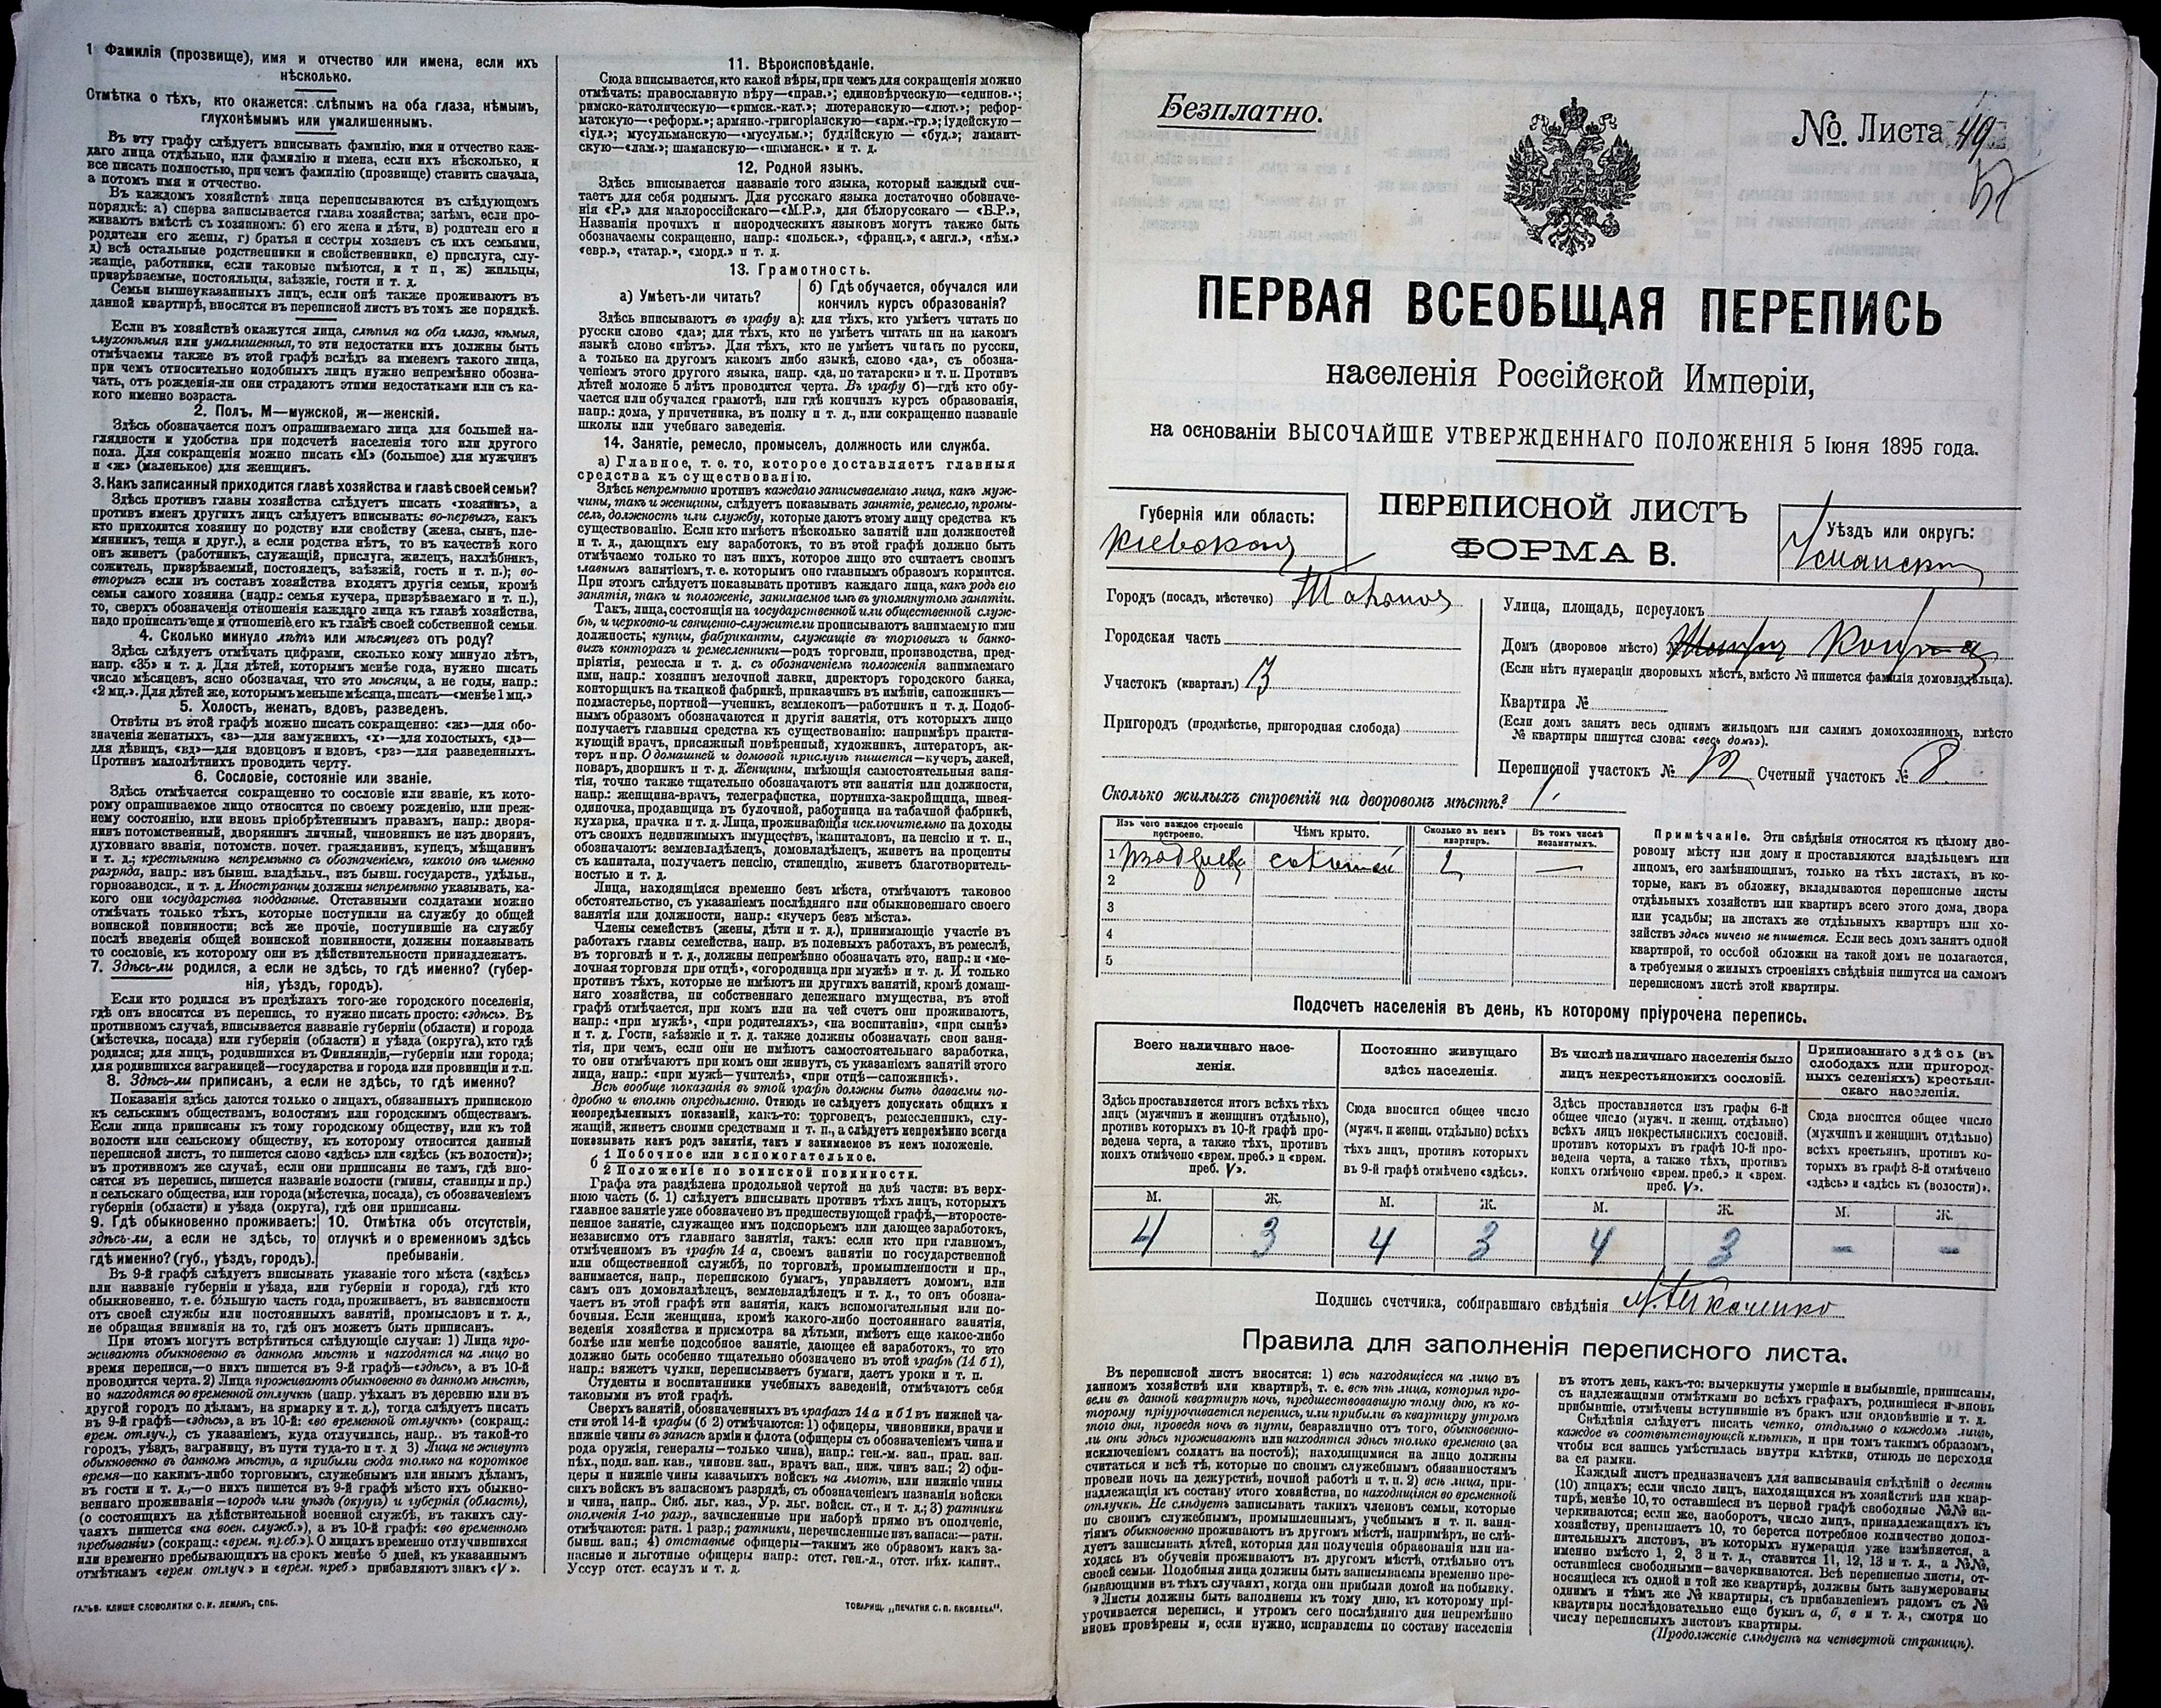 1 Фамилія (прозвище), имя и отчество или имена, если ихъ
нѣсколько.
Отмѣтка о тѣхъ, кто окажется: слѣпымъ на оба глаза, нѣмымъ,
глухонѣмымъ или умалишеннымъ.
Въ эту графу слѣдуетъ вписывать фамилію, имя и отчество каж-
даго лица отдѣльно, или фамилію и имена, если ихъ нѣсколько, и
все писать полностью, при чемъ фамилію (прозвище) ставить сначала,
а потомъ имя и отчество.
Въ каждомъ хозяйствѣ лица переписываются въ слѣдующемъ
порядкѣ: а) сперва записывается глава хозяйства; затѣмъ, если про-
живаютъ вмѣстѣ съ хозяиномъ: б) его жена и дѣти, в) родители его и
родители его жены, г) братья и сестры хозяевъ съ ихъ семьями,
д) всѣ остальные родственники и свойственники, е) прислуга, слу-
жащіе, работники, если таковые имѣются, и т п, ж) жильцы,
призрѣваемые, постояльцы, заѣзжіе, гости и т. д.
Семьи вышеуказанныхъ лицъ, если онѣ также проживаютъ въ
данной квартирѣ, вносятся въ переписной листъ въ томъ же порядкѣ.
Если въ хозяйствѣ окажутся лица, слѣпыя на оба глаза, нѣмыя,
глухонѣмыя или умалишенныя, то эти недостатки ихъ должны быть
отмѣчаемы также въ этой графѣ вслѣдъ за именемъ такого лица,
при чемъ относительно подобныхъ лицъ нужно непремѣнно обозна-
чать, отъ рожденія-ли они страдаютъ этими недостатками или съ ка-
кого именно возраста.
2. Полъ. М—мужской, ж—женскій.
Здѣсь обозначается полъ опрашиваемаго лица для большей на-
глядности и удобства при подсчетѣ населенія того или другого
пола. Для сокращенія можно писать «М» (большое) для мужчинъ
и «ж» (маленькое) для женщинъ.
3. Какъ записанный приходится главѣ хозяйства и главѣ своей семьи?
Здѣсь противъ главы хозяйства слѣдуетъ писать «хозяинъ», а
противъ именъ другихъ лицъ слѣдуетъ вписывать: во-первыхъ, какъ
кто приходится хозяину по родству или свойству (жена, сынъ, пле-
мянникъ, теща и друг.), а если родства нѣтъ, то въ качествѣ кого
онъ живетъ (работникъ, служащій, прислуга, жилецъ, нахлѣбникъ,
сожитель, призрѣваемый, постоялецъ, заѣзжій, гость и т. п.); во-
вторыхъ если въ составъ хозяйства входятъ другія семьи, кромѣ
семьи самого хозяина (напр.: семья кучера, призрѣваемаго и т. п.),
то, сверхъ обозначенія отношенія каждаго лица къ главѣ хозяйства,
надо прописать еще и отношеніе его къ главѣ своей собственной семьи.
4. Сколько минуло лѣтъ или мѣсяцевъ отъ роду?
Здѣсь слѣдуетъ отмѣчать цифрами, сколько кому минуло лѣтъ,
напр. «35» и т. д. Для дѣтей, которымъ менѣе года, нужно писать
число мѣсяцевъ, ясно обозначая, что это мѣсяцы, а не годы, напр.:
«2 мц.». Для дѣтей же, которымъ меньше мѣсяца, писать—«менѣе 1 мц.»
5. Холостъ, женатъ, вдовъ, разведенъ.
Отвѣты въ этой графѣ можно писать сокращенно: «ж»—для обо-
значенія женатыхъ, «з»—для замужнихъ, «х»—для холостыхъ, «д»—
для дѣвицъ, «вд»—для вдовцовъ и вдовъ, «рз»—для разведенныхъ.
Противъ малолѣтнихъ проводить черту.
6. Сословіе, состояніе или званіе.
Здѣсь отмѣчается сокращенно то сословіе или званіе, къ кото-
рому опрашиваемое лицо относится по своему рожденію, или преж-
нему состоянію, или вновь пріобрѣтеннымъ правамъ, напр.: дворя-
нинъ потомственный, дворянинъ личный, чиновникъ не изъ дворянъ,
духовнаго званія, потомств. почет. гражданинъ, купецъ, мѣщанинъ
и т. д.; крестьянинъ непремѣнно съ обозначеніемъ, какого онъ именно
разряда, напр.: изъ бывш. владѣльч., изъ бывш. государств., удѣльн.,
горнозаводск., и т. д. Иностранцы должны непремѣнно указывать, ка-
кого они государства подданные. Отставными солдатами можно
отмѣчать только тѣхъ, которые поступили на службу до общей
воинской повинности; всѣ же прочіе, поступившіе на службу
послѣ введенія общей воинской повинности, должны показывать
то сословіе, къ которому они въ дѣйствительности принадлежатъ.
7. Здѣсь-ли родился, а если не здѣсь, то гдѣ именно? (губер-
нія, уѣздъ, городъ).
Если кто родился въ предѣлахъ того-же городского поселенія,
гдѣ онъ вносится въ перепись, то нужно писать просто: «здѣсь». Въ
противномъ случаѣ, вписывается названіе губерніи (области) и города
(мѣстечка, посада) или губерніи (области) и уѣзда (округа), кто гдѣ
родился; для лицъ, родившихся въ Финляндіи,—губерніи или города;
для родившихся заграницей—государства и города или провинціи и т.п.
8. Здѣсь-ли приписанъ, а если не здѣсь, то гдѣ именно?
Показанія здѣсь даются только о лицахъ, обязанныхъ припискою
къ сельскимъ обществамъ, волостямъ или городскимъ обществамъ.
Если лица приписаны къ тому городскому обществу, или къ той
волости или сельскому обществу, къ которому относится данный
переписной листъ, то пишется слово «здѣсь» или «здѣсь (къ волости)»;
въ противномъ же случаѣ, если они приписаны не тамъ, гдѣ вно-
сятся въ перепись, пишется названіе волости (гмины, станицы и пр.)
и сельскаго общества, или города (мѣстечка, посада), съ обозначеніемъ
губерніи (области) и уѣзда (округа), гдѣ они приписаны.
9. Гдѣ обыкновенно проживаетъ:
здѣсь-ли, а если не здѣсь, то
гдѣ именно? (губ., уѣздъ, городъ).
10. Отмѣтка объ отсутствіи,
отлучкѣ и о временномъ здѣсь
пребываніи.
Въ 9-й графѣ слѣдуетъ вписывать указаніе того мѣста («здѣсь»
или названіе губерніи и уѣзда, или губерніи и города), гдѣ кто
обыкновенно, т. е. бо́льшую часть года, проживаетъ, въ зависимости
отъ своей службы или постоянныхъ занятій, промысловъ и т. д.,
не обращая вниманія на то, гдѣ онъ можетъ быть приписанъ.
При этомъ могутъ встрѣтиться слѣдующіе случаи: 1) Лица про-
живаютъ обыкновенно въ данномъ мѣстѣ и находятся на лицо во
время переписи,—о нихъ пишется въ 9-й графѣ—«здѣсь», а въ 10-й
проводится черта. 2) Лица проживаютъ обыкновенно въ данномъ мѣстѣ,
но находятся во временной отлучкѣ (напр. уѣхалъ въ деревню или въ
другой городъ по дѣламъ, на ярмарку и т. д.), тогда слѣдуетъ писать
въ 9-й графѣ—«здѣсь», а въ 10-й: «во временной отлучкѣ» (сокращ.:
врем. отлуч.), съ указаніемъ, куда отлучились, напр.. въ такой-то
городъ, уѣздъ, заграницу, въ пути туда-то и т. д 3) Лица не живутъ
обыкновенно въ данномъ мѣстѣ, а прибыли сюда только на короткое
время—по какимъ-либо торговымъ, служебнымъ или инымъ дѣламъ,
въ гости и т. д.,—о нихъ пишется въ 9-й графѣ мѣсто ихъ обыкно-
веннаго проживанія—городъ или уѣздъ (округъ) и губернія (область),
(о состоящихъ на дѣйствительной военной службѣ, въ такихъ слу-
чаяхъ пишется «на воен. служб.»), а въ 10-й графѣ: «во временномъ
пребываніи» (сокращ.: «врем. преб.»). О лицахъ временно отлучившихся
или временно пребывающихъ на срокъ менѣе 5 дней, къ указаннымъ
отмѣткамъ «врем. отлуч.» и «врем. преб.» прибавляютъ знакъ «V».
ГАЛЬВ. КЛИШЕ СЛОВОЛИТНИ О. И. ЛЕМАНЪ, СПБ.
11. Вѣроисповѣданіе.
Сюда вписывается, кто какой вѣры, при чемъ для сокращенія можно
отмѣчать: православную вѣру—«прав.»; единовѣрческую—«единов.»;
римско-католическую—«римск.-кат.»; лютеранскую—«лют.»; рефор-
матскую—«реформ.»; армяно.-григоріанскую—«арм.-гр.»; іудейскую—
«іуд.»; мусульманскую—«мусульм.»; буддійскую — «буд.»; ламаит-
скую—«лам.»; шаманскую—«шаманск.» и т. д.
12. Родной языкъ.
Здѣсь вписывается названіе того языка, который каждый счи-
таетъ для себя роднымъ. Для русскаго языка достаточно обозначе-
нія «Р.» для малороссійскаго—«М.Р.», для бѣлорусскаго — «Б.Р.»,
Названія прочихъ и инородческихъ языковъ могутъ также быть
обозначаемы сокращенно, напр.: «польск.», «франц.», « англ.», «нѣм.»
«евр.», «татар.», «морд.» и т. д.
13. Грамотность.
а) Умѣетъ-ли читать?
б) Гдѣ обучается, обучался или
кончилъ курсъ образованія?
Здѣсь вписываютъ въ графу а): для тѣхъ, кто умѣетъ читать по
русски слово «да»; для тѣхъ, кто не умѣетъ читать ни на какомъ
языкѣ слово «нѣтъ». Для тѣхъ, кто не умѣетъ читать по русски,
а только на другомъ какомъ либо языкѣ, слово «да», съ обозна-
ченіемъ этого другого языка, напр. «да, по татарски» и т. п. Противъ
дѣтей моложе 5 лѣтъ проводится черта. Въ графу б)—гдѣ кто обу-
чается или обучался грамотѣ, или гдѣ кончилъ курсъ образованія,
напр.: дома, у причетника, въ полку и т. д., или сокращенно названіе
школы или учебнаго заведенія.
14. Занятіе, ремесло, промыселъ, должность или служба.
а) Главное, т. е. то, которое доставляетъ главныя
средства къ существованію.
Здѣсь непремѣнно противъ каждаго записываемаго лица, какъ муж-
чины, такъ и женщины, слѣдуетъ показывать занятіе, ремесло, промы-
селъ, должность или службу, которые даютъ этому лицу средства къ
существованію. Если кто имѣетъ нѣсколько занятій или должностей
и т. д., дающихъ ему заработокъ, то въ этой графѣ должно быть
отмѣчаемо только то изъ нихъ, которое лицо это считаетъ своимъ
главнымъ занятіемъ, т. е. которымъ оно главнымъ образомъ кормится.
При этомъ слѣдуетъ показывать противъ каждаго лица, какъ родъ его
занятія, такъ и положеніе, занимаемое имъ въ упомянутомъ занятіи.
Такъ, лица, состоящія на государственной или общественной служ-
бѣ, и церковно-и священно-служители прописываютъ занимаемую ими
должность; купцы, фабриканты, служащіе въ торговыхъ и банко-
выхъ конторахъ и ремесленники—родъ торговли, производства, пред-
пріятія, ремесла и т. д. съ обозначеніемъ положенія занимаемаго
ими, напр.: хозяинъ мелочной лавки, директоръ городского банка,
конторщикъ на ткацкой фабрикѣ, приказчикъ въ имѣніи, сапожникъ—
подмастерье, портной—ученикъ, землекопъ—работникъ и т. д. Подоб-
нымъ образомъ обозначаются и другія занятія, отъ которыхъ лицо
получаетъ главныя средства къ существованію: напримѣръ практи-
кующій врачъ, присяжный повѣренный, художникъ, литераторъ, ак-
теръ и пр. О домашней и домовой прислугѣ пишется—кучеръ, лакей,
поваръ, дворникъ и т. д. Женщины, имѣющія самостоятельныя заня-
тія, точно также тщательно обозначаютъ эти занятія или должности,
напр.: женщина-врачъ, телеграфистка, портниха-закройщица, швея-
одиночка, продавщица въ булочной, работница на табачной фабрикѣ,
кухарка, прачка и т. д. Лица, проживающія исключительно на доходы
отъ своихъ недвижимыхъ имуществъ, капиталовъ, на пенсію и т. п.,
обозначаютъ: землевладѣлецъ, домовладѣлецъ, живетъ на проценты
съ капитала, получаетъ пенсію, стипендію, живетъ благотворитель-
ностью и т. д.
Лица, находящіяся временно безъ мѣста, отмѣчаютъ таковое
обстоятельство, съ указаніемъ послѣдняго или обыкновеннаго своего
занятія или должности, напр.: «кучеръ безъ мѣста».
Члены семействъ (жены, дѣти и т. д.), принимающіе участіе въ
работахъ главы семейства, напр. въ полевыхъ работахъ, въ ремеслѣ,
въ торговлѣ и т. д., должны непремѣнно обозначать это, напр.: и «ме-
лочная торговля при отцѣ», «огородница при мужѣ» и т. д. И только
противъ тѣхъ, которые не имѣютъ ни другихъ занятій, кромѣ домаш-
няго хозяйства, ни собственнаго денежнаго имущества, въ этой
графѣ отмѣчается, при комъ или на чей счетъ они проживаютъ,
напр.: «при мужѣ», «при родителяхъ», «на воспитаніи», «при сынѣ»
и т. д. Гости, заѣзжіе и т. д. также должны обозначать свои заня-
тія, при чемъ, если они не имѣютъ самостоятельнаго заработка,
то они отмѣчаютъ при комъ они живутъ, съ указаніемъ занятій этого
лица, напр.: «при мужѣ—учителѣ», «при отцѣ—сапожникѣ».
Всѣ вообще показанія въ этой графѣ должны быть даваемы по-
дробно и вполнѣ опредѣленно. Отнюдь не слѣдуетъ допускать общихъ и
неопредѣленныхъ показаній, какъ-то: торговецъ, ремесленникъ, слу-
жащій, живетъ своими средствами и т. п., а слѣдуетъ непремѣнно всегда
показывать какъ родъ занятія, такъ и занимаемое въ немъ положеніе.
б 1 Побочное или вспомогательное.
2 Положеніе по воинской повинности.
Графа эта раздѣлена продольной чертой на двѣ части: въ верх-
нюю часть (б. 1) слѣдуетъ вписывать противъ тѣхъ лицъ, которыхъ
главное занятіе уже обозначено въ предшествующей графѣ,—второсте-
пенное занятіе, служащее имъ подспорьемъ или дающее заработокъ,
независимо отъ главнаго занятія, такъ: если кто при главномъ,
отмѣченномъ въ графѣ 14 а, своемъ занятіи по государственной
или общественной службѣ, по торговлѣ, промышленности и пр.,
занимается, напр., перепискою бумагъ, управляетъ домомъ, или
самъ онъ домовладѣлецъ, землевладѣлецъ и т. д., то онъ обозна-
чаетъ въ этой графѣ эти занятія, какъ вспомогательныя или по-
бочныя. Если женщина, кромѣ какого-либо постояннаго занятія,
веденія хозяйства и присмотра за дѣтьми, имѣетъ еще какое-либо
болѣе или менѣе подсобное занятіе, дающее ей заработокъ, то это
должно быть особенно тщательно обозначено въ этой графѣ (14 б 1),
напр.: вяжетъ чулки, переписываетъ бумаги, даетъ уроки и т. п.
Студенты и воспитанники учебныхъ заведеній, отмѣчаютъ себя
таковыми въ этой графѣ.
Сверхъ занятій, обозначенныхъ въ графахъ 14 а и б 1 въ нижней ча-
сти этой 14-й графы (б 2) отмѣчаются: 1) офицеры, чиновники, врачи и
нижніе чины въ запасѣ арміи и флота (офицеры съ обозначеніемъ чина и
рода оружія, генералы—только чина), напр.: ген-м. зап., прап. зап.
пѣх., подп. зап. кав., чиновн. зап., врачъ зап., ниж. чинъ зап.; 2) офи-
церы и нижніе чины казачьихъ войскъ на льготѣ, или нижніе чины
сихъ войскъ въ запасномъ разрядѣ, съ обозначеніемъ названія войска
и чина, напр.. Сиб. льг. каз., Ур. льг. войск. ст., и т. д.; 3) ратники
ополченія 1-го разр., зачисленные при наборѣ прямо въ ополченіе,
отмѣчаются: ратн. 1 разр.; ратники, перечисленные изъ запаса:—ратн.
бывш. зап.; 4) отставные офицеры—такимъ же образомъ какъ за-
пасные и льготные офицеры напр.: отст. ген.-л., отст. пѣх. капит.,
Уссур отст. есаулъ и т. д.
ТОВАРИЩ. „ПЕЧАТНЯ С. П. ЯКОВЛЕВА“.
Безплатно.
№ Листа 49
57
ПЕРВАЯ ВСЕОБЩАЯ ПЕРЕПИСЬ
населенія Россійской Имперіи,
на основаніи ВЫСОЧАЙШЕ УТВЕРЖДЕННАГО ПОЛОЖЕНІЯ 5 Іюня 1895 года.
ПЕРЕПИСНОЙ ЛИСТЪ
ФОРМА В.
Губернія или область:
Кіевская
Уѣздъ или округъ:
Уманскій
Городъ (посадъ, мѣстечко)
Городская часть
Участокъ (кварталъ) 3
Пригородъ (предмѣстье, пригородная слобода)
Улица, площадь, переулокъ
Домъ (дворовое мѣсто) №
(Если нѣтъ нумераціи дворовыхъ мѣстъ, вмѣсто № пишется фамилія домовладѣльца).
Квартира №
(Если домъ занятъ весь однимъ жильцомъ или самимъ домохозяиномъ, вмѣсто
№ квартиры пишутся слова: «весь домъ»).
Переписной участокъ № Счетный участокъ № 8
Сколько жилыхъ строеній на дворовомъ мѣстѣ? 1
Изъ чего каждое строеніе построено.
Чѣмъ крыто.
Сколько въ немъ квартиръ.
Въ томъ числѣ незанятыхъ.
1 изъ дерева соломой 2 —
2
3
4
5
Примѣчаніе. Эти свѣдѣнія относятся къ цѣлому дво-
ровому мѣсту или дому и проставляются владѣльцемъ или
лицомъ, его замѣняющимъ, только на тѣхъ листахъ, въ ко-
торые, какъ въ обложку, вкладываются переписные листы
отдѣльныхъ хозяйствъ или квартиръ всего этого дома, двора
или усадьбы; на листахъ же отдѣльныхъ квартиръ или хо-
зяйствъ здѣсь ничего не пишется. Если весь домъ занятъ одной
квартирой, то особой обложки на такой домъ не полагается,
а требуемыя о жилыхъ строеніяхъ свѣдѣнія пишутся на самомъ
переписномъ листѣ этой квартиры.
Подсчетъ населенія въ день, къ которому пріурочена перепись.
Всего наличнаго насе-
ленія.
Здѣсь проставляется итогъ всѣхъ тѣхъ
лицъ (мужчинъ и женщинъ отдѣльно),
противъ которыхъ въ 10-й графѣ про-
ведена черта, а также тѣхъ, противъ
коихъ отмѣчено «врем. преб.» и «врем.
преб. V».
Постоянно живущаго
здѣсь населенія.
Сюда вносится общее число
(мужч. и женщ. отдѣльно) всѣхъ
тѣхъ лицъ, противъ которыхъ
въ 9-й графѣ отмѣчено «здѣсь».
Въ числѣ наличнаго населенія было
лицъ некрестьянскихъ сословій.
Здѣсь проставляется изъ графы 6-й
общее число (мужч. и женщ. отдѣльно)
всѣхъ лицъ некрестьянскихъ сословій.
противъ которыхъ въ графѣ 10-й про-
ведена черта, а также тѣхъ, противъ
коихъ отмѣчено «врем. преб.» и «врем.
преб. V».
Приписаннаго здѣсь (въ
слободахъ или пригород-
ныхъ селеніяхъ) крестьян-
скаго населенія.
Сюда вносится общее число
(мужчинъ и женщинъ отдѣльно)
всѣхъ крестьянъ, противъ ко-
торыхъ въ графѣ 8-й отмѣчено
«здѣсь» и «здѣсь къ (волости)».
М. Ж. М. Ж. М. Ж. М. Ж.
4 3 4 3 4 3 — —
Подпись счетчика, собиравшаго свѣдѣнія Ткаченко
Правила для заполненія переписного листа.
Въ переписной листъ вносятся: 1) всѣ находящіеся на лицо въ
данномъ хозяйствѣ или квартирѣ, т. е. всѣ тѣ лица, которыя про-
вели въ данной квартирѣ ночь, предшествовавшую тому дню, къ ко-
торому пріурочивается перепись, или прибыли въ квартиру утромъ
того дня, проведя ночь въ пути, безразлично отъ того, обыкновенно-
ли они здѣсь проживаютъ или находятся здѣсь только временно (за
исключеніемъ солдатъ на постоѣ); находящимися на лицо должны
считаться и всѣ тѣ, которые по своимъ служебнымъ обязанностямъ
провели ночь на дежурствѣ, ночной работѣ и т. п. 2) всѣ лица, при-
надлежащія къ составу этого хозяйства, но находящіяся во временной
отлучкѣ. Не слѣдуетъ записывать такихъ членовъ семьи, которые
по своимъ служебнымъ, промышленнымъ, учебнымъ и т. п. заня-
тіямъ обыкновенно проживаютъ въ другомъ мѣстѣ, напримѣръ, не слѣ-
дуетъ записывать дѣтей, которыя для полученія образованія или на-
ходясь въ обученіи проживаютъ въ другомъ мѣстѣ, отдѣльно отъ
своей семьи. Подобныя лица должны быть записываемы временно пре-
бывающими въ тѣхъ случаяхъ, когда они прибыли домой на побывку.
Листы должны быть заполнены къ тому дню, къ которому прі-
урочивается перепись, и утромъ сего послѣдняго дня непремѣнно
вновь провѣрены и, если нужно, исправлены по составу населенія
въ этотъ день, какъ-то: вычеркнуты умершіе и выбывшіе, приписаны,
съ надлежащими отмѣтками во всѣхъ графахъ, родившіеся и вновь
прибывшіе, отмѣчены вступившіе въ бракъ или овдовѣвшіе и т. д.
Свѣдѣнія слѣдуетъ писать четко, отдѣльно о каждомъ лицѣ,
каждое въ соотвѣтствующей клѣткѣ, и при томъ такимъ образомъ,
чтобы вся запись умѣстилась внутри клѣтки, отнюдь не переходя
за ея рамки.
Каждый листъ предназначенъ для записыванія свѣдѣній о десяти
(10) лицахъ; если число лицъ, находящихся въ хозяйствѣ или квар-
тирѣ, менѣе 10, то оставшіеся въ первой графѣ свободные №№ за-
черкиваются; если же, наоборотъ, число лицъ, принадлежащихъ къ
хозяйству, превышаетъ 10, то берется потребное количество допол-
нительныхъ листовъ, въ которыхъ нумерація уже измѣняется, а
именно вмѣсто 1, 2, 3 и т. д., ставится 11, 12, 13 и т. д., а №№,
оставшіеся свободными—зачеркиваются. Всѣ переписные листы, от-
носящіеся къ одной и той же квартирѣ, должны быть занумерованы
однимъ и тѣмъ же № квартиры, съ прибавленіемъ рядомъ съ №
квартиры послѣдовательно еще буквъ а, б, в и т. д., смотря по
числу переписныхъ листовъ квартиры.
(Продолженіе слѣдуетъ на четвертой страницѣ).